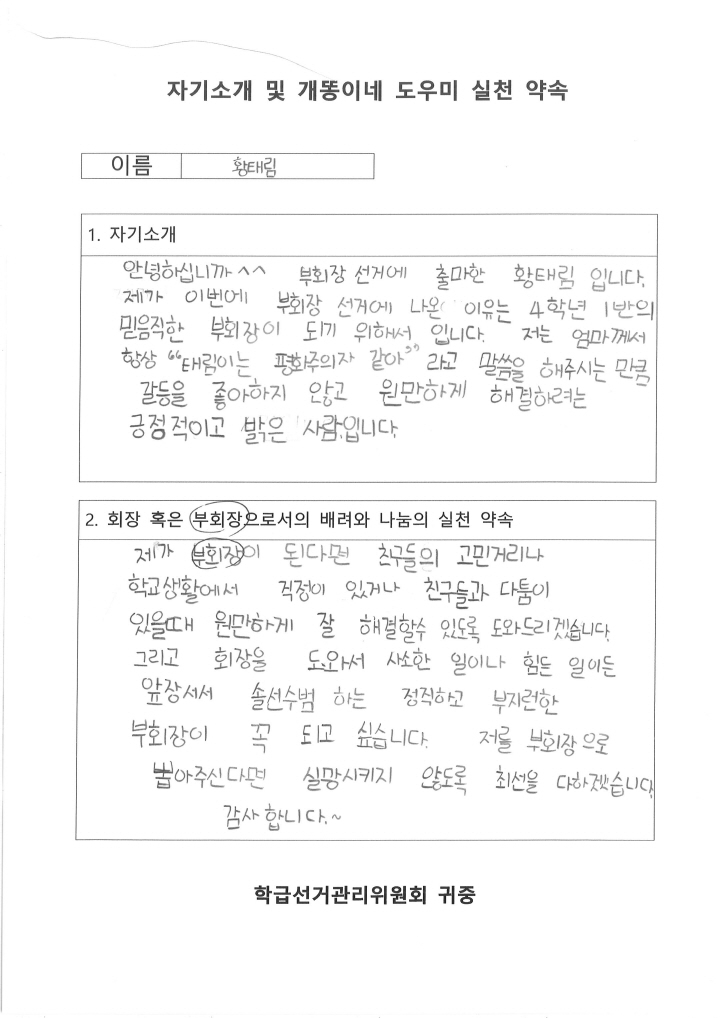 자기소개 및 개똥이네 도우미 실천 약속
이름 황태림
1. 자기소개
안녕하십니까^^ 부회장 선거에 출마한 황태림 입니다.
제가 이번에 부회장 선거에 나온 이유는 4학년 1반의
믿음직한 부회장이 되기 위해서 입니다. 저는 엄마께서
항상 "태림이는 평화주의자 같아" 라고 말씀을 해주시는 만큼
갈등을 좋아하지 않고 원만하게 해결하려는
긍정적이고 밝은 사람입니다.
2. 회장 혹은 부회장으로서의 배려와 나눔의 실천 약속
제가 부회장이 된다면 친구들의 고민거리나
학교생활에서 걱정이 있거나 친구들과 다툼이
있을때 원만하게 잘 해결할수 있도록 도와드리겠습니다.
그리고 회장을 도와서 사소한 일이나 힘든 일이든
앞장서서 솔선수범 하는 정직하고 부지런한
부회장이 꼭 되고 싶습니다. 저를 부회장으로
뽑아주신다면 실망시키지 않도록 최선을 다하겠습니다.
감사합니다.~
학급선거관리위원회 귀중